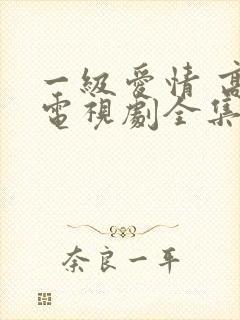 一級愛情 高
電視劇全集
奈良一平